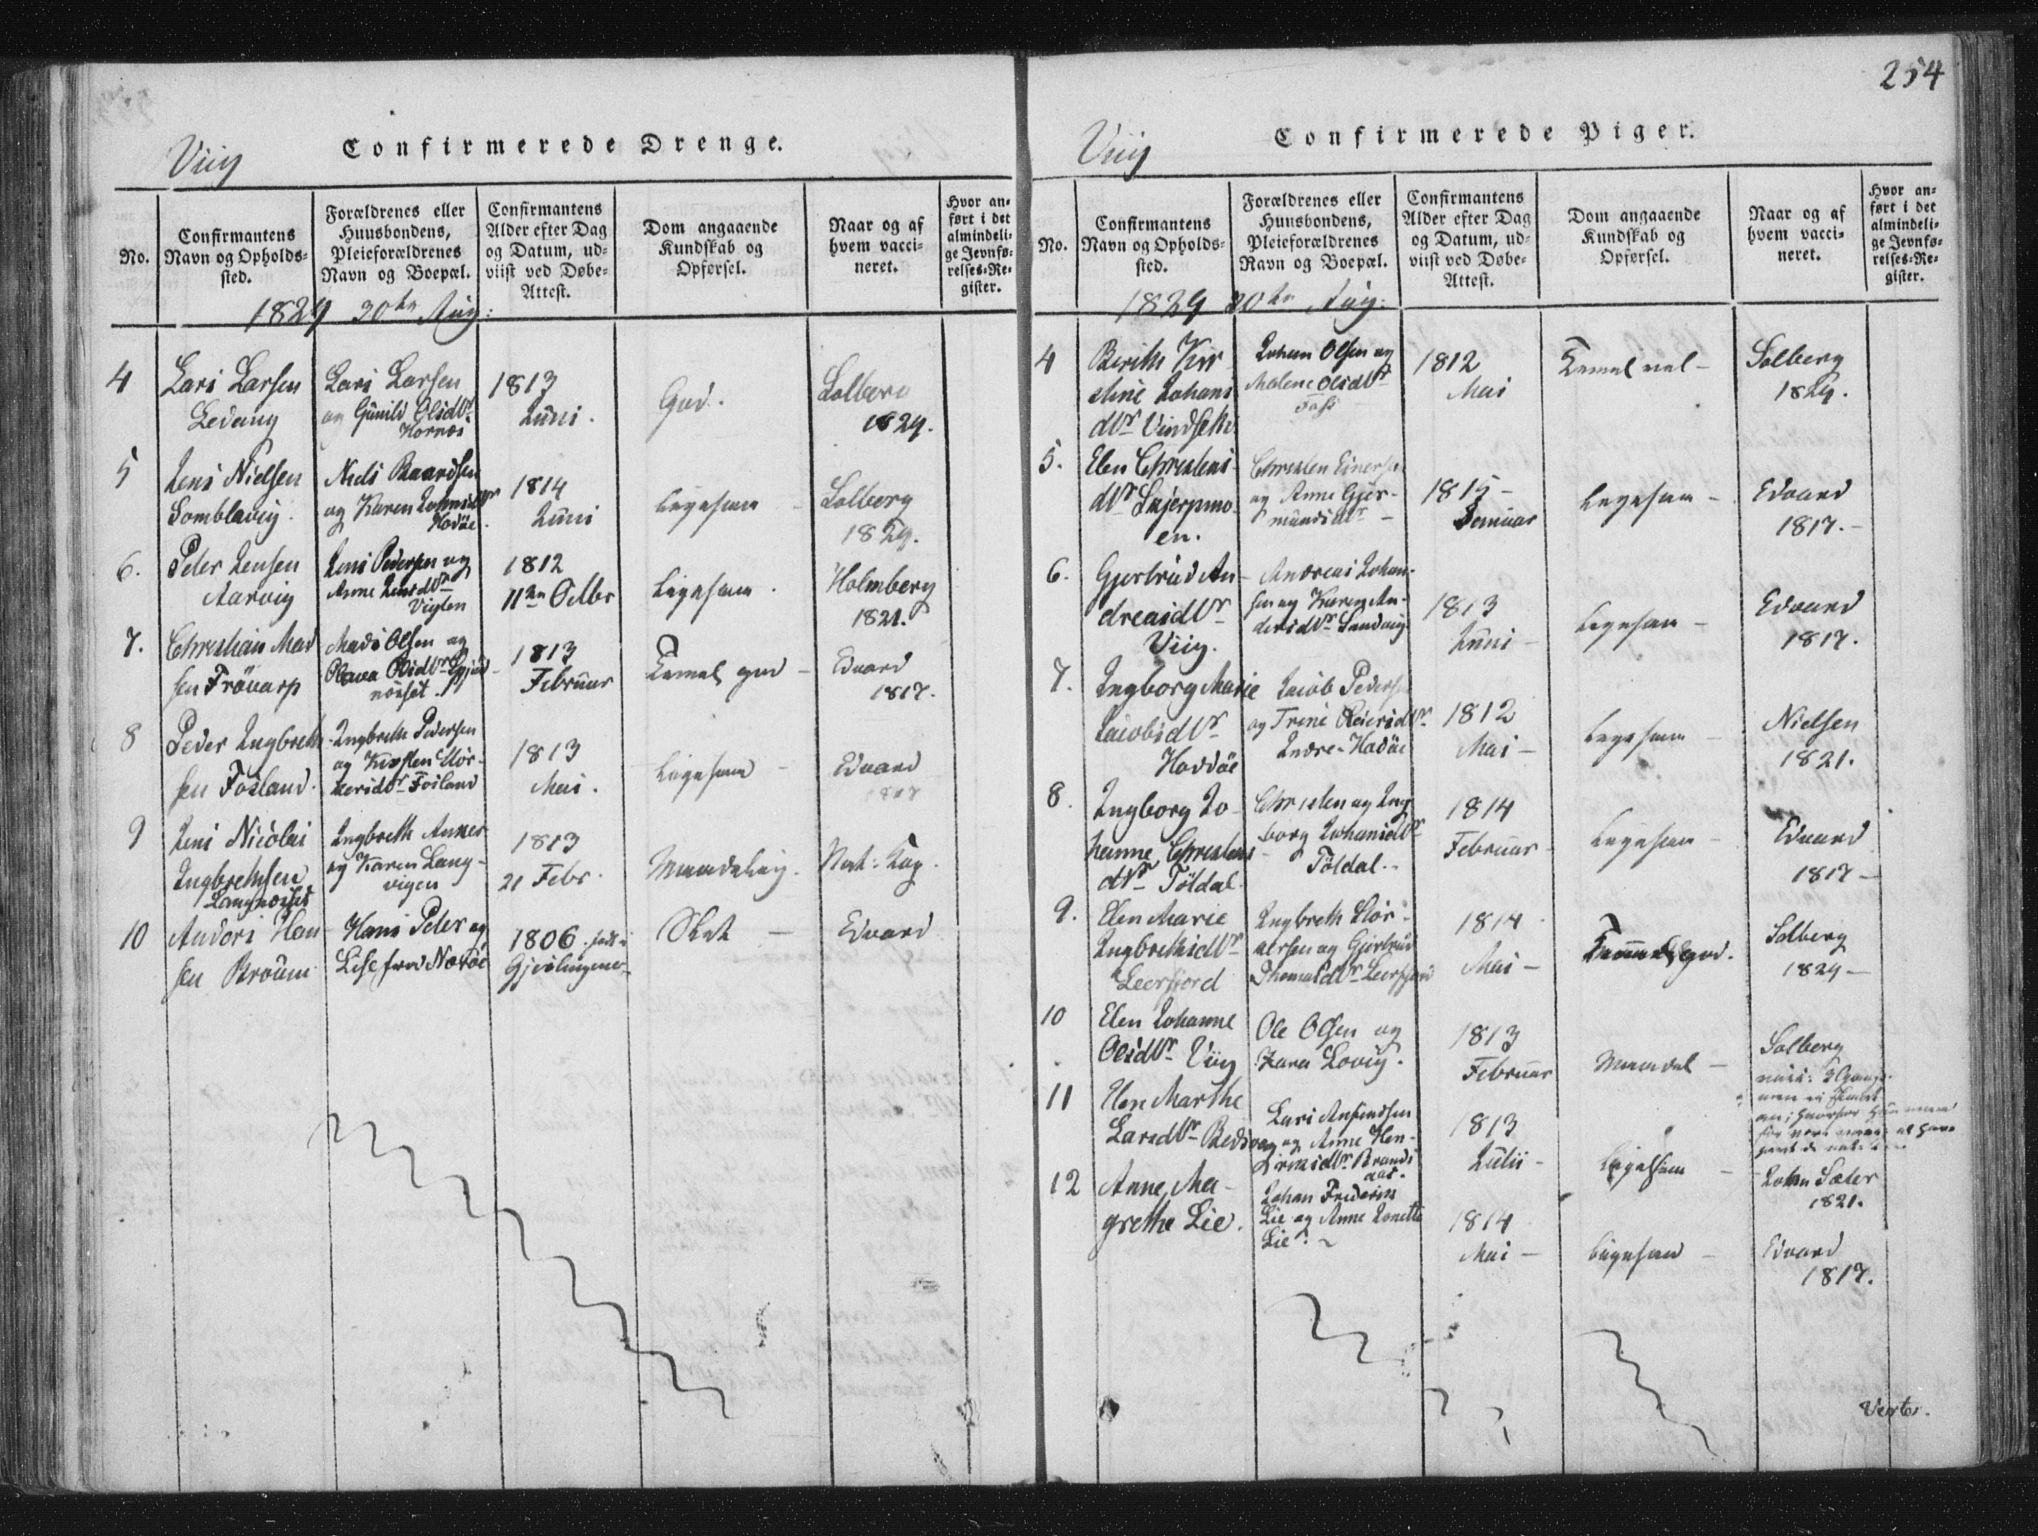 254
Viig
Confirmerede Drenge.
No.
Confirmantens
Navn og Opholds-
sted.
Forældrenes eller
Huusbondens,
Pleieforældrenes
Navn og Boepæl.
Confirmantens
Alder efter Dag
og Datum, ud-
viist ved Døbe-
Attest.
Dom angaaende
Kundskab og
Opførsel.
Naar og af
hvem vacci-
neret.
Hvor an-
ført i det
almindeli-
ge Jevnfø-
relses-Re-
gister.
1829 30te Aug:
4
Lars Larsen
Ledang
Lars Larsen
og Gunild Olsdtr
Hornæs
1813
Juni.
God.
Solberg
1829.
5
Jens Nielsen
Somblavig.
Niels Baardsen
og Karen Johnsdtr
Hodøe.
1814
Juni
Ligesaa -
Solberg
1829.
6.
Peter Jensen
Aarvig
Jens Pedersen og
Anne Jensdtr
Vigten
1812
11te Octbr
Ligesaa.
Holmberg
1821.
7.
Christian Mad
sen Frövarp
Mads Olsen og
Olsdtr
1813
Februar
Temel god -
Edvard
1817.
8
Peder Ingbreth
sen Fosland.
Ingbreth Pedersen
og Kirsten Stör-
kersdtr Fosland
1813
Mai.
Ligesaa -
Edvard
9
Jens Nicolai
Ingbrethsen
Ingbreth
og Karen Lang-
vigen
1813
21 Febr.
Maadelig.
Nat: Kop.
10
Anders Han
sen
Hans Peter og
Lise fra Næröe
1806. født i
Gjeslingerne
Slet -
Edvard
Viig
Confirmerede Piger.
No.
Confirmantens
Navn og Opholds-
sted.
Forældrenes eller
Huusbondens,
Pleieforældrenes
Navn og Boepæl.
Confirmantens
Alder efter Dag
og Datum, ud-
viist ved Døbe-
Attest.
Dom angaaende
Kundskab og
Opførsel.
Naar og af
hvem vacci-
neret.
Hvor an-
ført i det
almindeli-
ge Jevnfø-
relses-Re-
gister.
1829 30te Aug.
4
Berith Kir-
stine Johans
dtr
Johan Olsen og
Malene Olsdtr
1812
Mai
Temel vel -
Solberg
1829.
5.
Elen Christens
dtr Skjerpmo-
en.
Christen Einersen
og Anne Gjer-
mundsdtr -
1815 -
Januar
Ligesaa -
Edvard
1817.-
6.
Gjertrud An-
dreasdtr
Viig.
Andreas Johan-
sen og Karen An-
dersdtr Sandvig
1813
Juni -
Ligesaa -
Edvard
1817.
7.
Ingborg Marie
Jacobsdtr
Hoddöe
Jacob Pedersen
og Trine
Indre-Hodöe
1812
Mai -
Ligesaa -
Nielsen
1821.
8.
Ingborg Jo-
hanne Christens
dtr Töldal.
Christen og Ing-
borg Johansdtr
Töldal.-
1814
Februar
Ligesaa -
Edvard
1817 -
9.
Elen Marie
Ingbrethsdtr
Leerfiord
Ingbreth Stör-
kersen og Gjertrud
Thomasdtr Leerfjord
1814
Mai -
god.
Solberg
1829 -
10
Elen Johanne
Olsdtr Viig
Ole Olsen og
Kara Lovig.
1813
Februar
Maadel -
Solberg
11
Elen Marthe
Larsdtr
Lars Amundsen
og Anne Hen-
Brands
aas.
1813
Julii -
Ligesaa -
John Sæter
1821.
12
Anne Ma-
grethe Lie.
Johan Friderik
Lie og Anne Jonette
Lie.
1814
Mai -
Ligesaa -
Edvard
1817.
Verte.